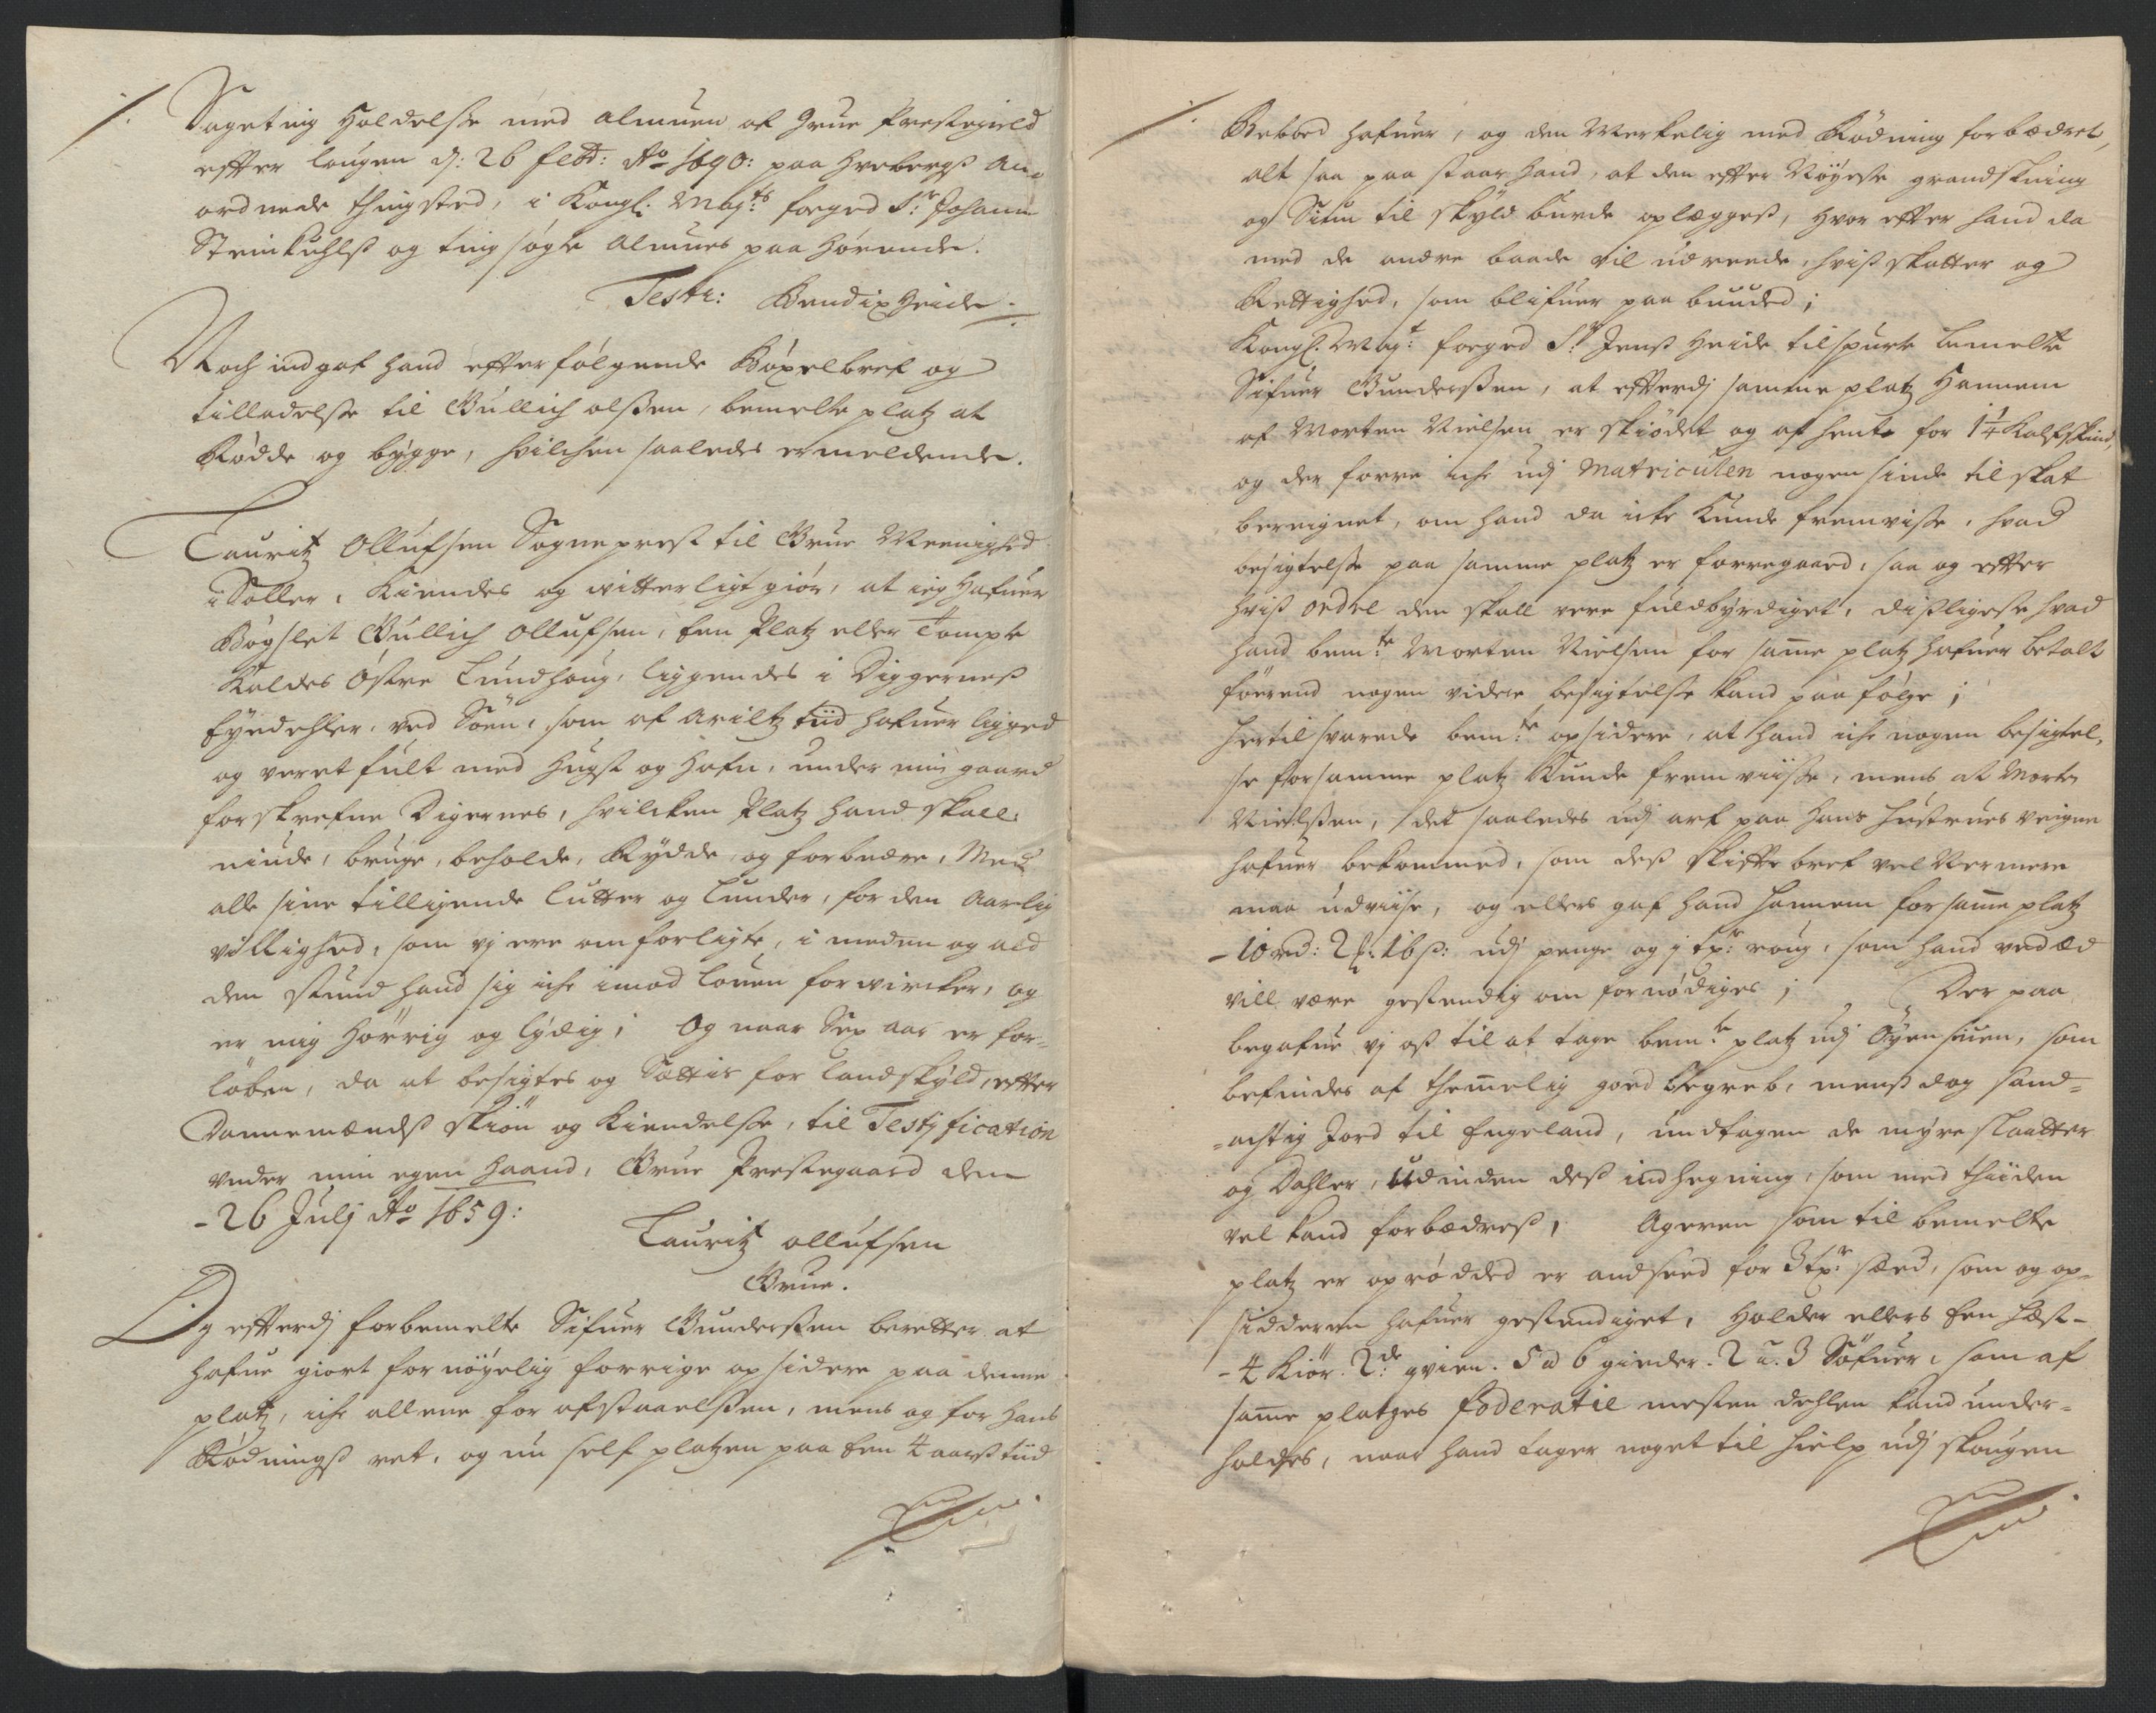 Sageting Holdelsse med almuen af Grue Prestegield
effter lougen d: 26 febr: Ao 1690: paa Hrebergs an-
ordnede thingsted, i Kongl: Mayts foeged Sr Johann
Steinkuhlss og ting søgte Almues paa hørende.
Testr: Bendix Heide
Noch indgaf hand effterfølgende Bøxelbref og
tilladelsse til Gullich olssen, bemelte platz at
Rødde og bygge, hvilchen saaledes ermeldende.
Lauritz Ollufsen Sogneprest til Grue Meenighed
i Soller, Kiendes og witterligt giør, at ieg hafuer
Bøgslet Gullich Ollufsen, Een Platz eller Tompte
Kaldes Østre Lundhoug, liggendes i Diggerness
Eyedehler, ved Søen, som af ariltz tiid hafuer ligged
og veret fult med Hugst og Hafn, under min gaard
forskrefne Digernes, hvilcken Platz hand skall:
niude, bruge, beholde, Rydde, og forbedre, Med
alle sine tilligende lutter og lunder, for den Aarlig
villighed, som vj ere om forligte, i meden og ald
den stund hand sig iche imod louen forwircker, og
er mig hørrig og lydig; Og naar Sex aar er for-
løben, da at besigtes og Settis for Landskyld, effter
Dannemændss skiøn og Kiendelsse, til Testification
under min egen haand, Grue Prestegaard den
- 26 Julj Ao 1659:
Lauritz ollufsen
Grue.
Og efftterdj forbemelte Sifuer Gunderssen beretter at
hafue giort fornøyelig forrige opsidere paa denne
platz, iche allene for afstaaelssen, mens og for hans
Rødningss ret, og nu self platzen paa Een 4 aarss tiid
Beboed hafuer, og den Merkelig med Rødning forbædret,
alt saa paa staar hand, at den effter Nøyeste grandskning
og Siun til skyld burde oplæggess, hvor effter hand da
med de andre baade vil udreede, hviss skatter og
Rettighed, som blifuer paa buuded;
Kongl: Mayt: foeged Sr Jenss Heide tilspurte bemelte
Sifuer Gunderssen, at effterdj samme platz Hannem
af Morten Nielsen er skiødet og af hente for 1¼ Kalfskind,
og der forre iche udj Matriculen nogen sinde til skat
beregnet, om hand da icke kunde fremvisse, hvad
besigtelsse paa samme platz er forregaaed, saa og effter
hviss ordel den skall vere fuldbyrdiget, dissligeste hvad
hand bemte Morten Nielsen for same platz hafuer betalt
førend nogen videre besigtelsse kand paafølge;
Hertil svarede bemte opsidere, at hand iche nogen besigtel-
se for samme platz kunde fremviisse, mens at Morten
Nielssen, det saaledes udj arf paa hans hustrues veigne
hafuer bekommed, som dess skiffte bref vel Nermere
maa udviise, og ellers gaf hand hannem for same platz
- 10 rd: 2 [?]: 16 s: udj penge og j tp:r roug, som hand ved æd
vill være gestendig om fornødiges; Der paa
begafue vj oss til at tage bemte platz udj Øyensiuen, som
befindes af themelig goed begreb, menss dog sand-
-achtig Jord til Engeland, undtagen de myre slaatter
og Dahler, udinden dess indhegning, som med thiiden
vel kand forbædress, Ageren som til bemelte
platz er oprødded er andseed for 3 tp:r sæed, som og op-
sidderen hafuer gestendiget, Holder ellers Een hest-
- 4 Kiør. 2de qvier. 5 a 6 gieder. 2 a. 3 Søfuer, som af
same platzes foderatie mesten dehlen kand under-
holdes, naar hand tager noget til hielp udj skougen